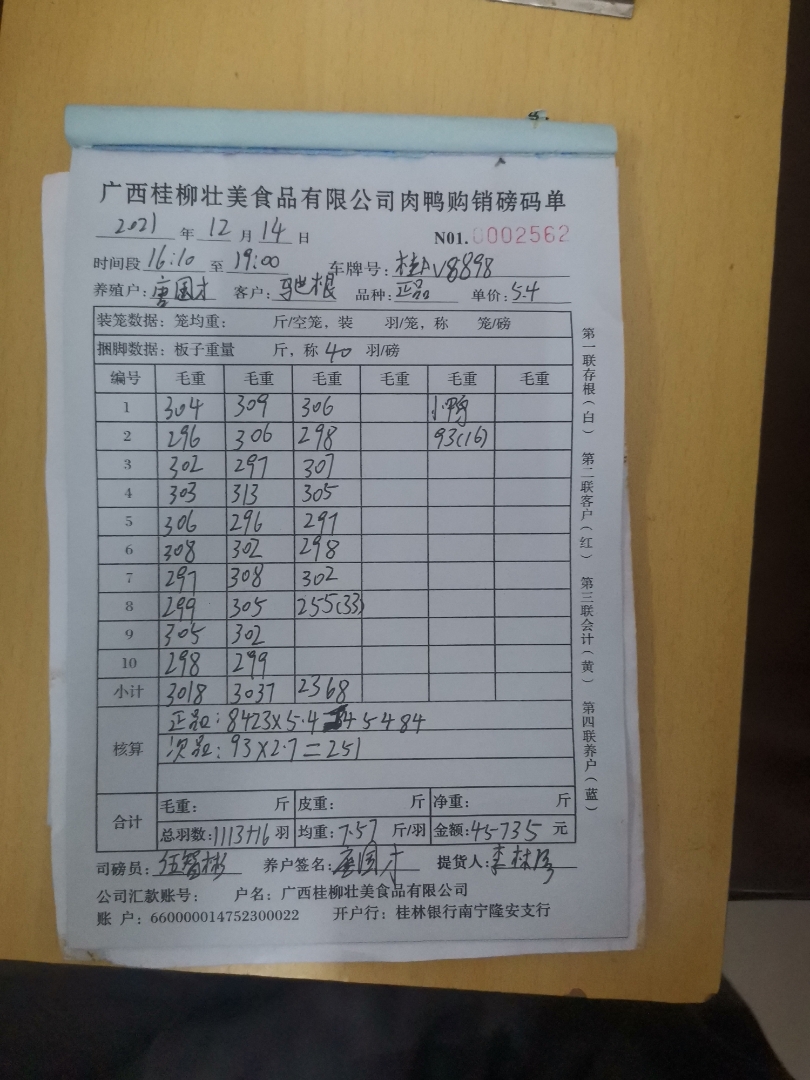 广西桂柳壮美食品有限公司肉鸭购销磅码单
2021 年 12 月 14 日 N01. 0002562
时间段 16:10 至 19:00 车牌号: 桂AV8898
养殖户: 唐国才 客户: 马也根 品种: 正品 单价: 5.4
装笼数据: 笼均重: 斤/空笼, 装 羽/笼, 称 笼/磅
捆脚数据: 板子重量 斤, 称 40 羽/磅
编号 毛重 毛重 毛重 毛重 毛重 毛重
1 304 309 306 小鸭
2 296 306 298 93(16)
3 302 297 307
4 303 313 305
5 306 296 297
6 308 302 298
7 297 308 302
8 299 305 255(33)
9 305 302
10 298 299
小计 3018 3037 2368
核算
正品: 8423×5.4 45484
次品: 93×2.7=251
合计
毛重: 斤 皮重: 斤 净重: 斤
总羽数: 1113+16 羽 均重: 7.57 斤/羽 金额: 45735 元
司磅员: 养户签名: 唐国才 提货人:
公司汇款账号: 户名: 广西桂柳壮美食品有限公司
账 户: 660000014752300022 开户行: 桂林银行南宁隆安支行
第一联存根(白) 第二联客户(红) 第三联会计(黄) 第四联养户(蓝)